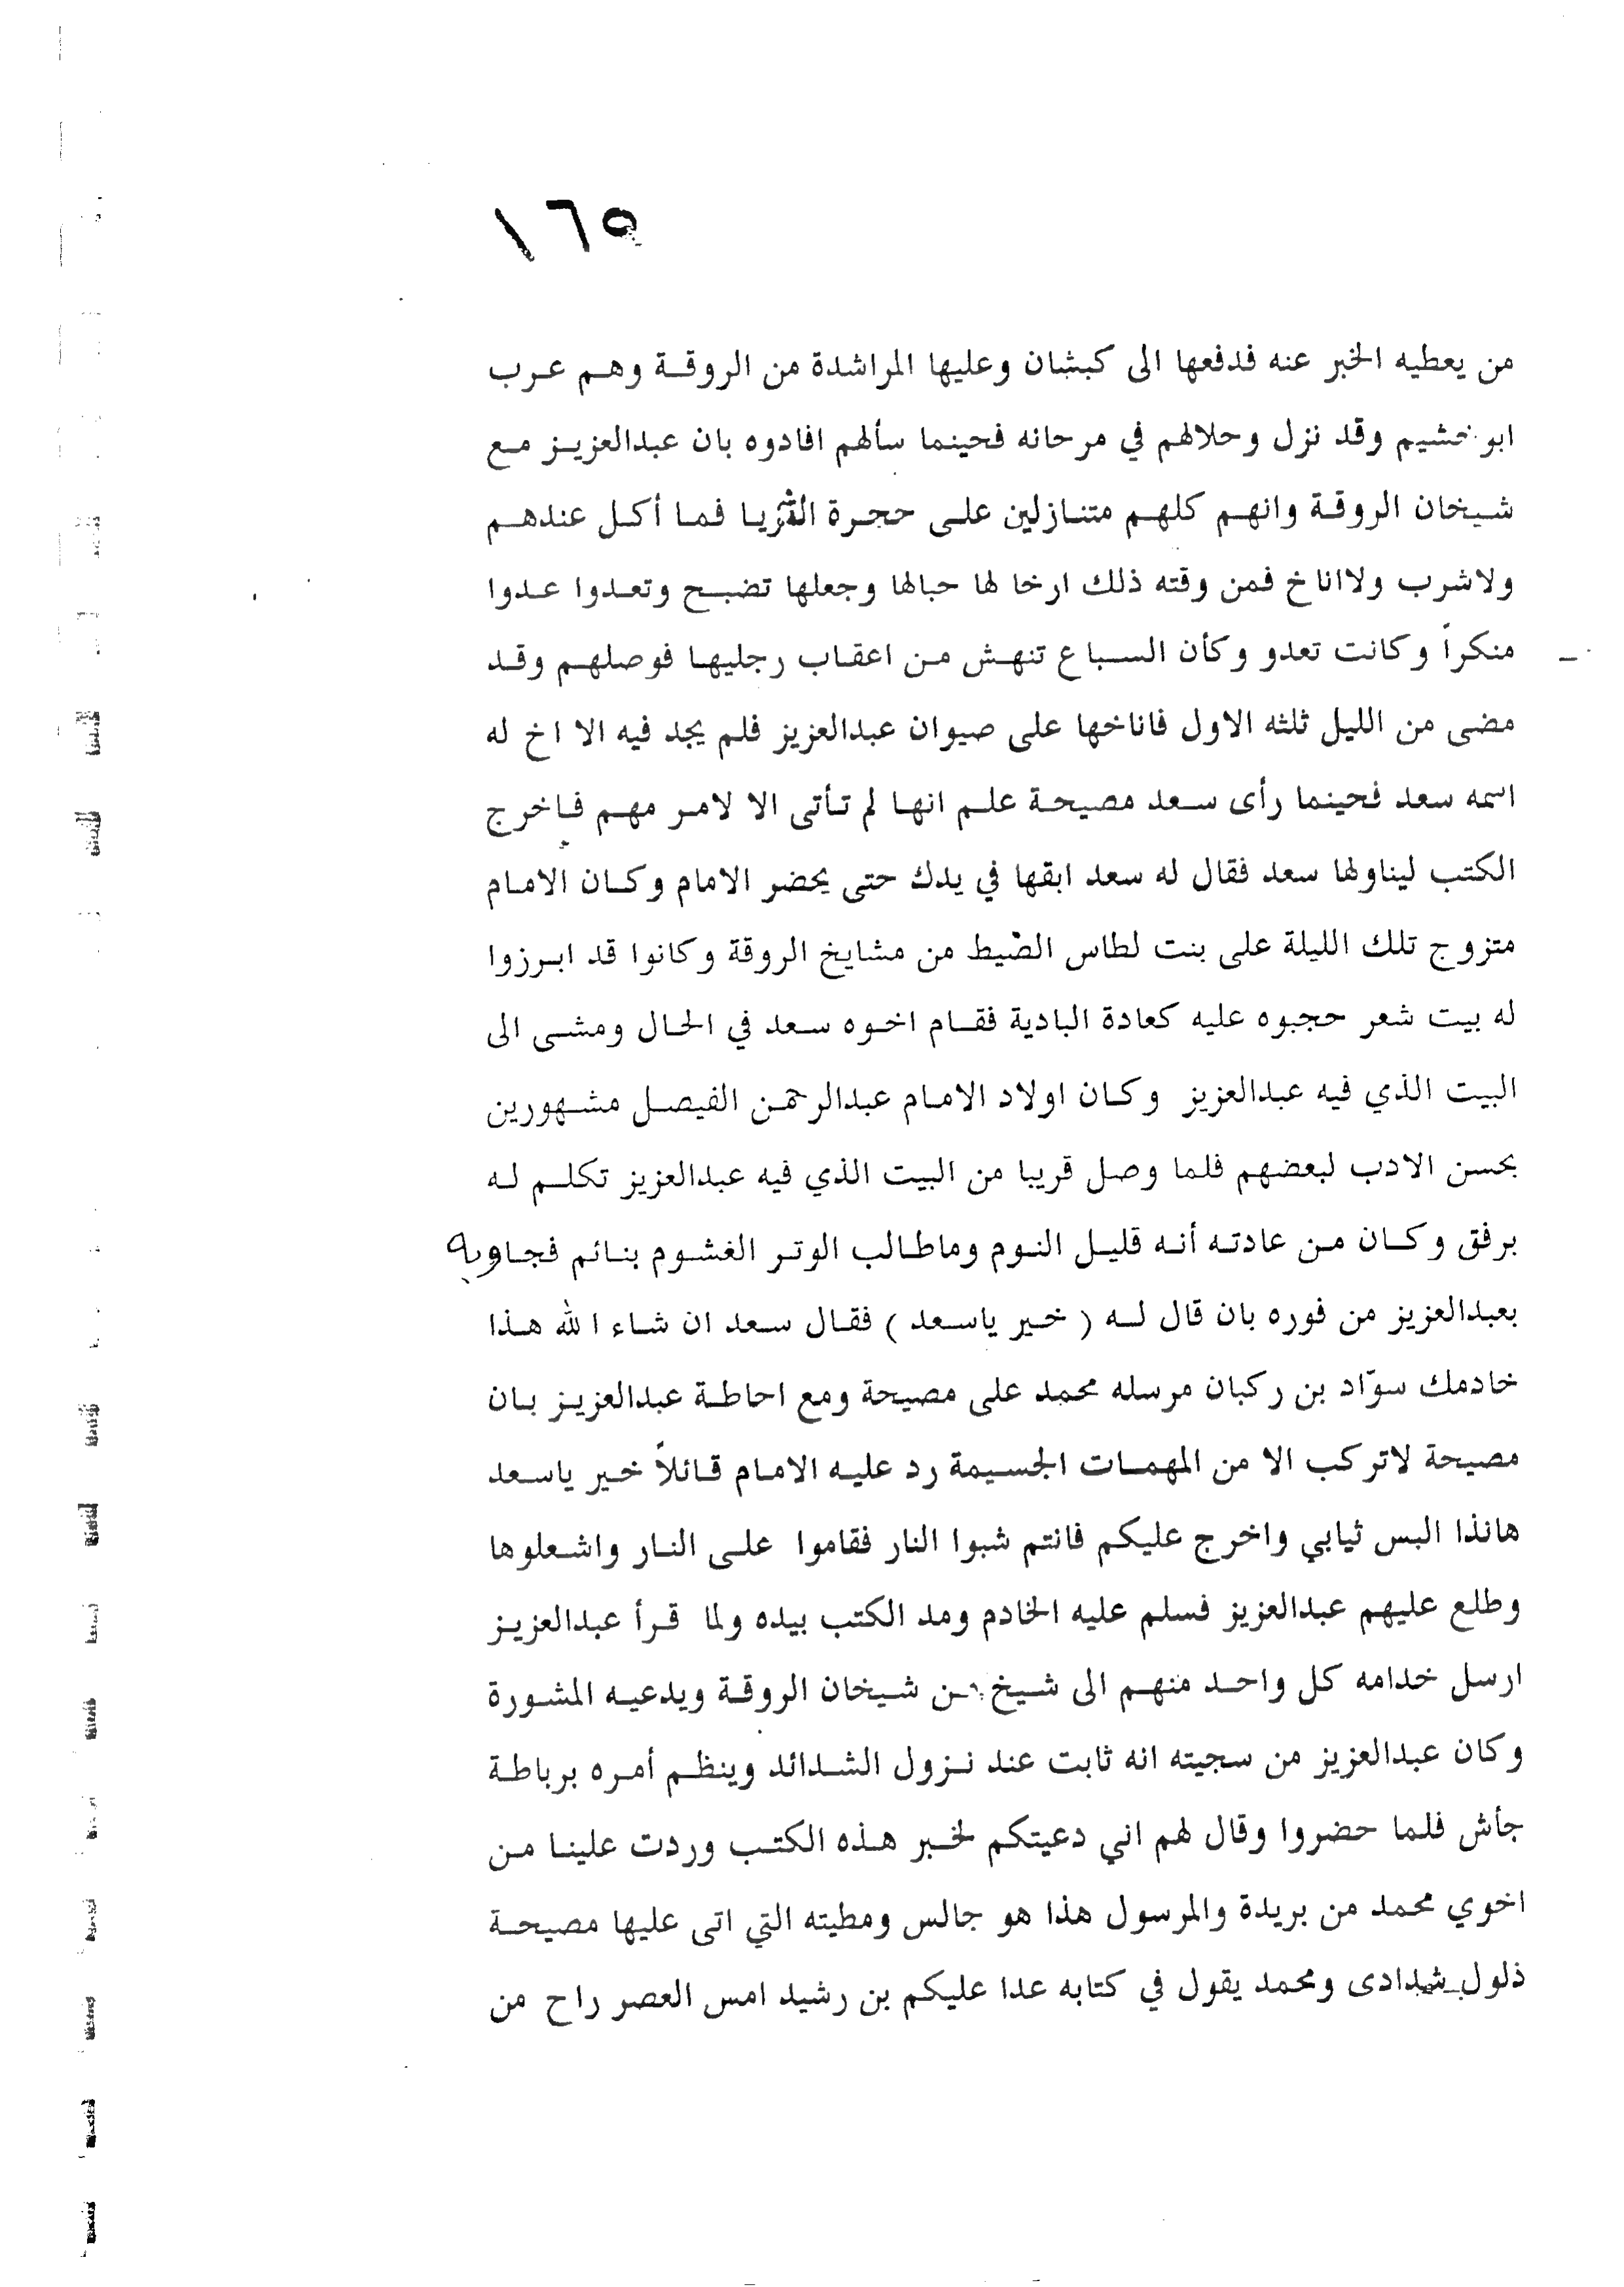 ١٦٥
من يعطيه الخبر عنه فدفعها الى كبشان وعليها المراشدة من الروقة وهم عرب
ابو خشيم وقد نزل وحلالهم في مرحانه فحينما سألهم افادوه بان عبدالعزيز مع
شيخان الروقة وانهم كلهم متنازلين على حجرة الثريا فما أكل عندهم
ولاشرب ولااناخ فمن وقته ذلك ارخا لها حبالها وجعلها تضبح وتعدوا عدوا
منكراً وكانت تعدو وكأن السباع تنهش من اعقاب رجليها فوصلهم وقد
مضى من الليل ثلثه الاول فاناخها على صيوان عبدالعزيز فلم يجد فيه الا اخ له
اسمه سعد فحينما رأى سعد مصيحة علم انها لم تأتى الا لامر مهم فاخرج
الكتب ليناولها سعد فقال له سعد ابقها في يدك حتى يحضر الامام وكان الامام
متزوج تلك الليلة على بنت لطاس الضيط من مشايخ الروقة وكانوا قد ابرزوا
له بيت شعر حجبوه عليه كعادة البادية فقام اخوه سعد في الحال ومشى الى
البيت الذي فيه عبدالعزيز وكان اولاد الامام عبدالرحمن الفيصل مشهورين
بحسن الادب لبعضهم فلما وصل قريبا من البيت الذي فيه عبدالعزيز تكلم له
برفق وكان من عادته أنه قليل النوم وماطالب الوتر الغشوم بنائم فجاوبه
بعبدالعزيز من فوره بان قال له ( خير ياسعد ) فقال سعد ان شاء الله هذا
خادمك سوّاد بن ركبان مرسله محمد على مصيحة ومع احاطة عبدالعزيز بان
مصيحة لاتركب الا من المهمات الجسيمة رد عليه الامام قائلاً خير ياسعد
هانذا البس ثيابي واخرج عليكم فانتم شبوا النار فقاموا على النار واشعلوها
وطلع عليهم عبدالعزيز فسلم عليه الخادم ومد الكتب بيده ولما قرأ عبدالعزيز
ارسل خدامه كل واحد منهم الى شيخ من شيخان الروقة ويدعيه المشورة
وكان عبدالعزيز من سجيته انه ثابت عند نزول الشدائد وينظم أمره برباطة
جأش فلما حضروا وقال لهم اني دعيتكم لخبر هذه الكتب وردت علينا من
اخوي محمد من بريدة والمرسول هذا هو جالس ومطيته التي اتى عليها مصيحة
ذلول شدادى ومحمد يقول في كتابه عدا عليكم بن رشيد امس العصر راح من